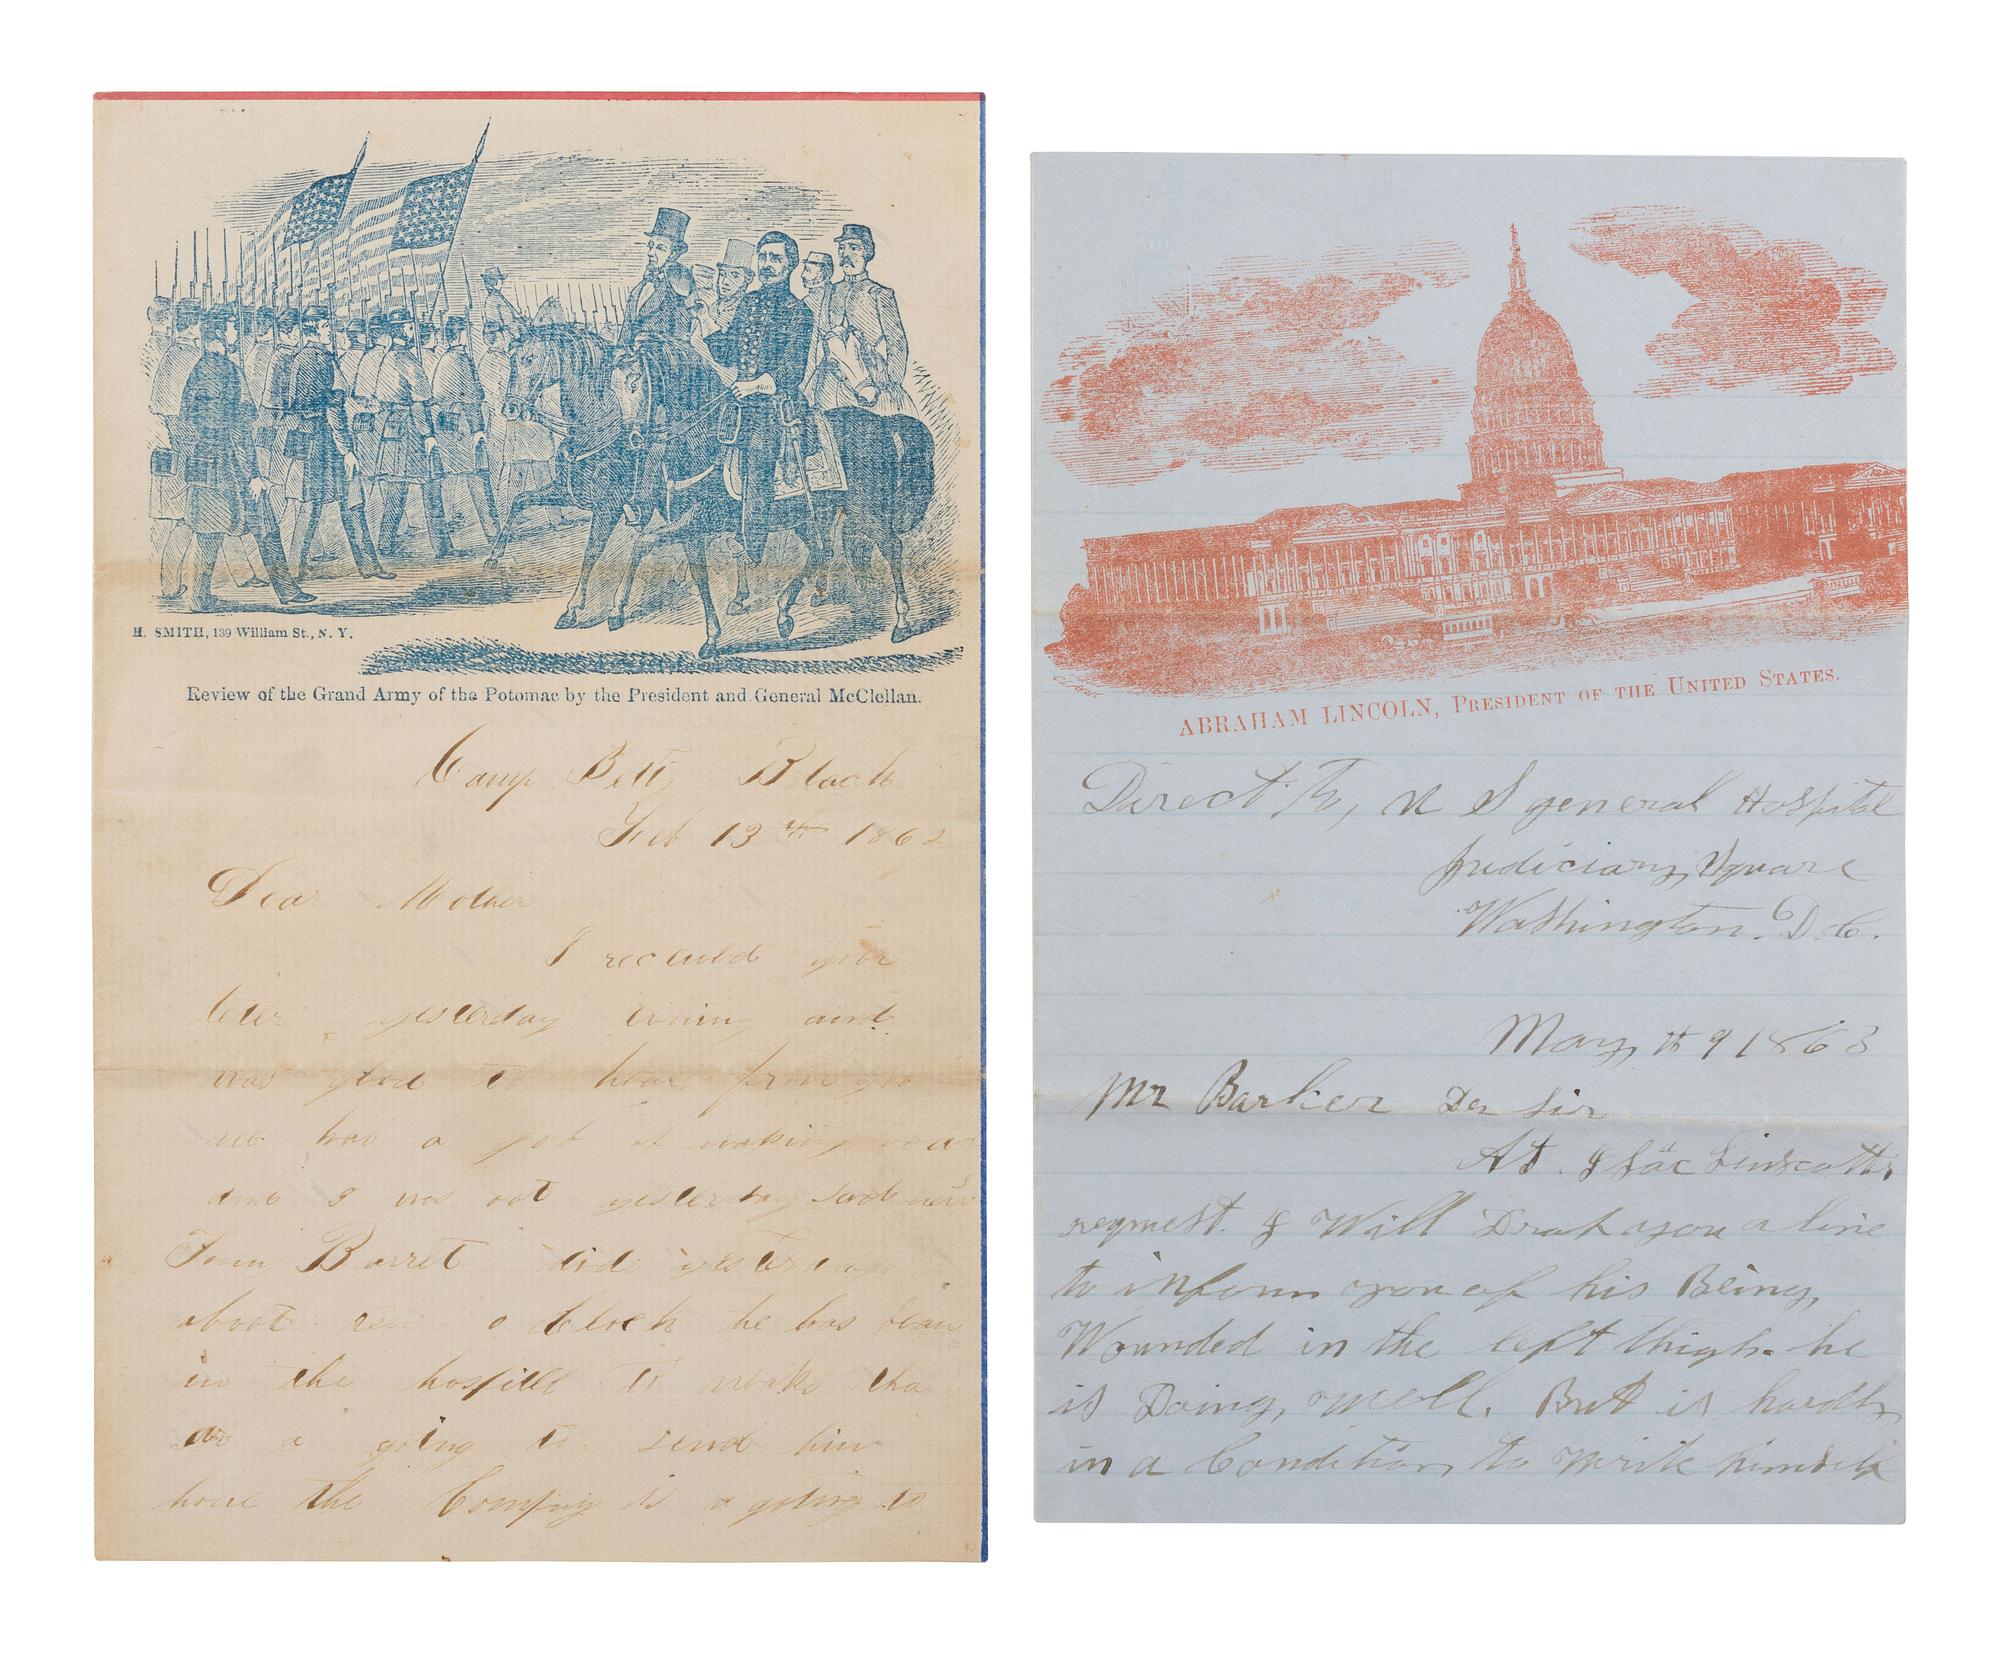 H. SMITH, 139 William St., N. Y.
Review of the Grand Army of the Potomac by the President and General McClellan.
Camp Black
Feb 13th 1862
Dear Mother
I receuvd your
leter yesterday evining and
was glod to hear from you
we hav a job of making
and I was oot yesterday
Barret dide yesterday
aboot ten o clock he has bean
in the hospitle to weaks tha
are a going to send him
home the Company is a goting to
ABRAHAM LINCOLN, PRESIDENT OF THE UNITED STATES.
Direct To, U S general Hospital
Judiciary Square
Washington. D. C.
May th 9 1863
Mr Barker Der Sir
At Linscotts
request. I Will Drop you a line
to inform you of his Being
Wounded in the left thigh. he
is Doing, well. But is hardly
in a Condition to write himself